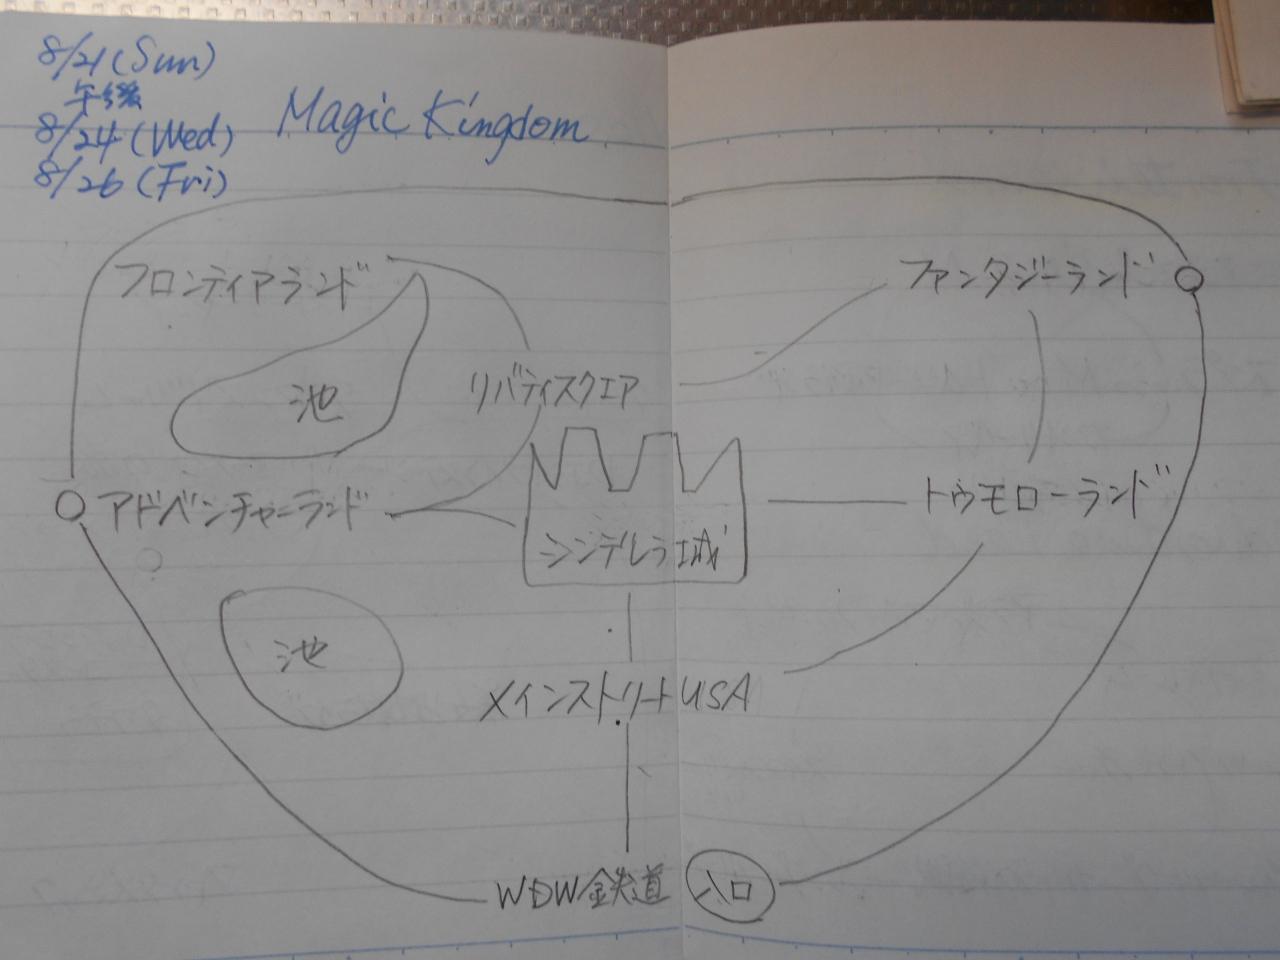 8/21(Sun)
午後
8/24(Wed)
8/26(Fri)
Magic Kingdom
フロンティアランド
ファンタジーランド
池
リバティスクエア
アドベンチャーランド
トゥモローランド
シンデレラ城
池
メインストリートUSA
WDW鉄道 入口